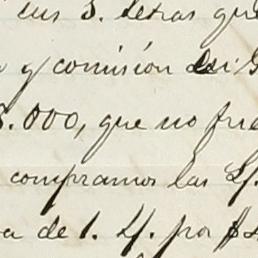 sus 3. letras que
y comisión de
8.000, que no fue
compramos las L/.
a de 1. L/. por $